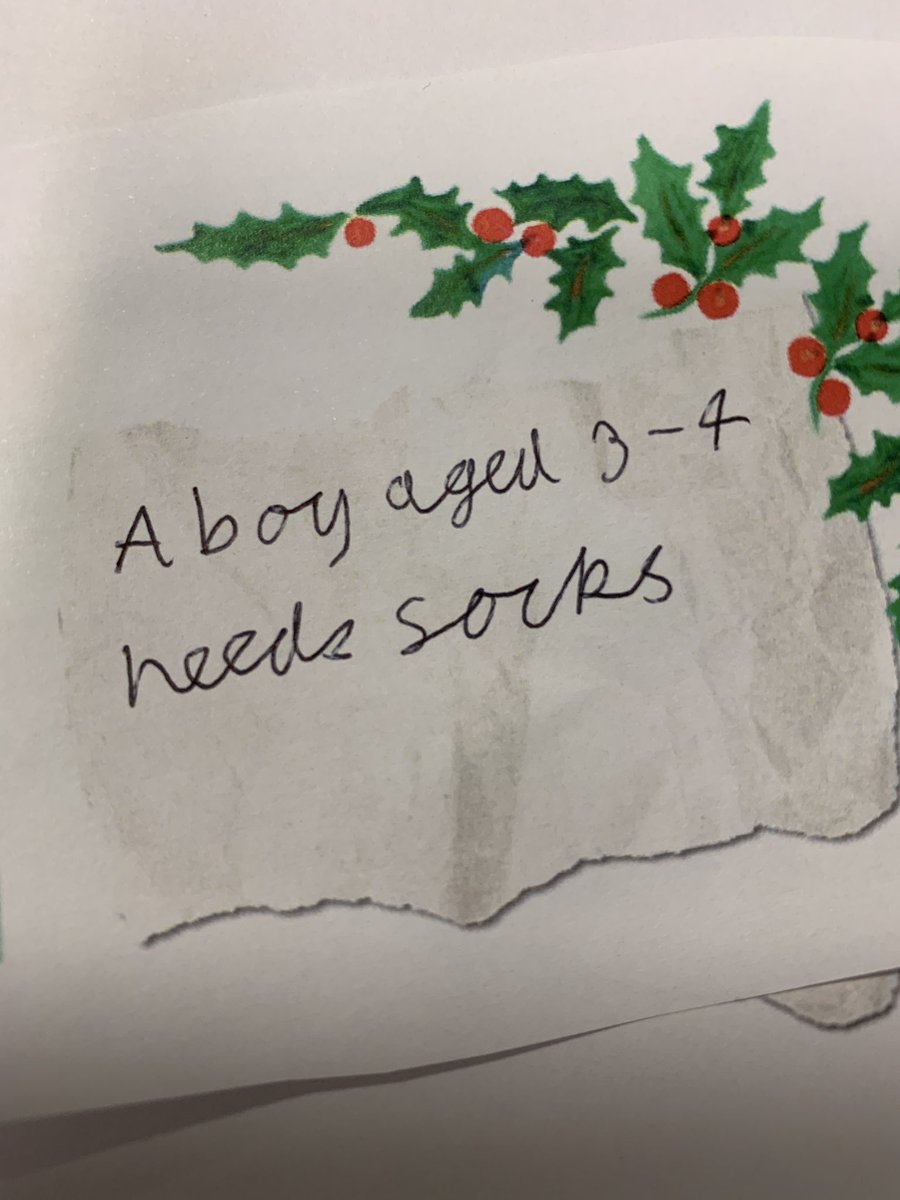 A boy aged 3-4
needs socks